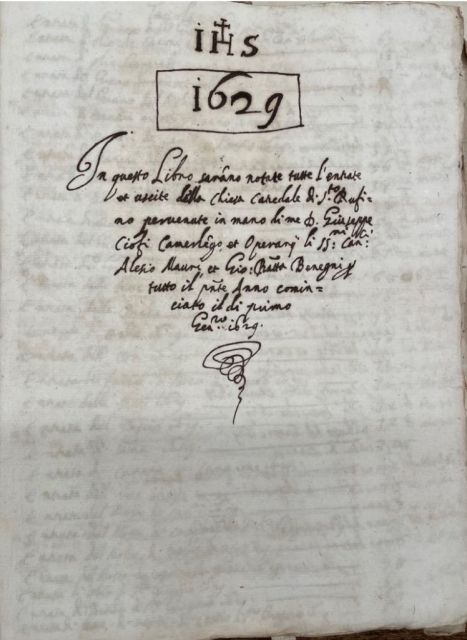 IHS
1629
In questo Libro sarãno notate tutte l'entrate
et uscite della Chiesa Catedale di S.to Rufi=
no pervenute in mano di me D. Giuseppe
Ciofi Camerlẽgo et Operarij li SS.mi Can:ci
Alesio Mauri et Gio: Batta Benegni p
tutto il pñte Anno comin=
ciato il di primo
Gen.ro 1629.